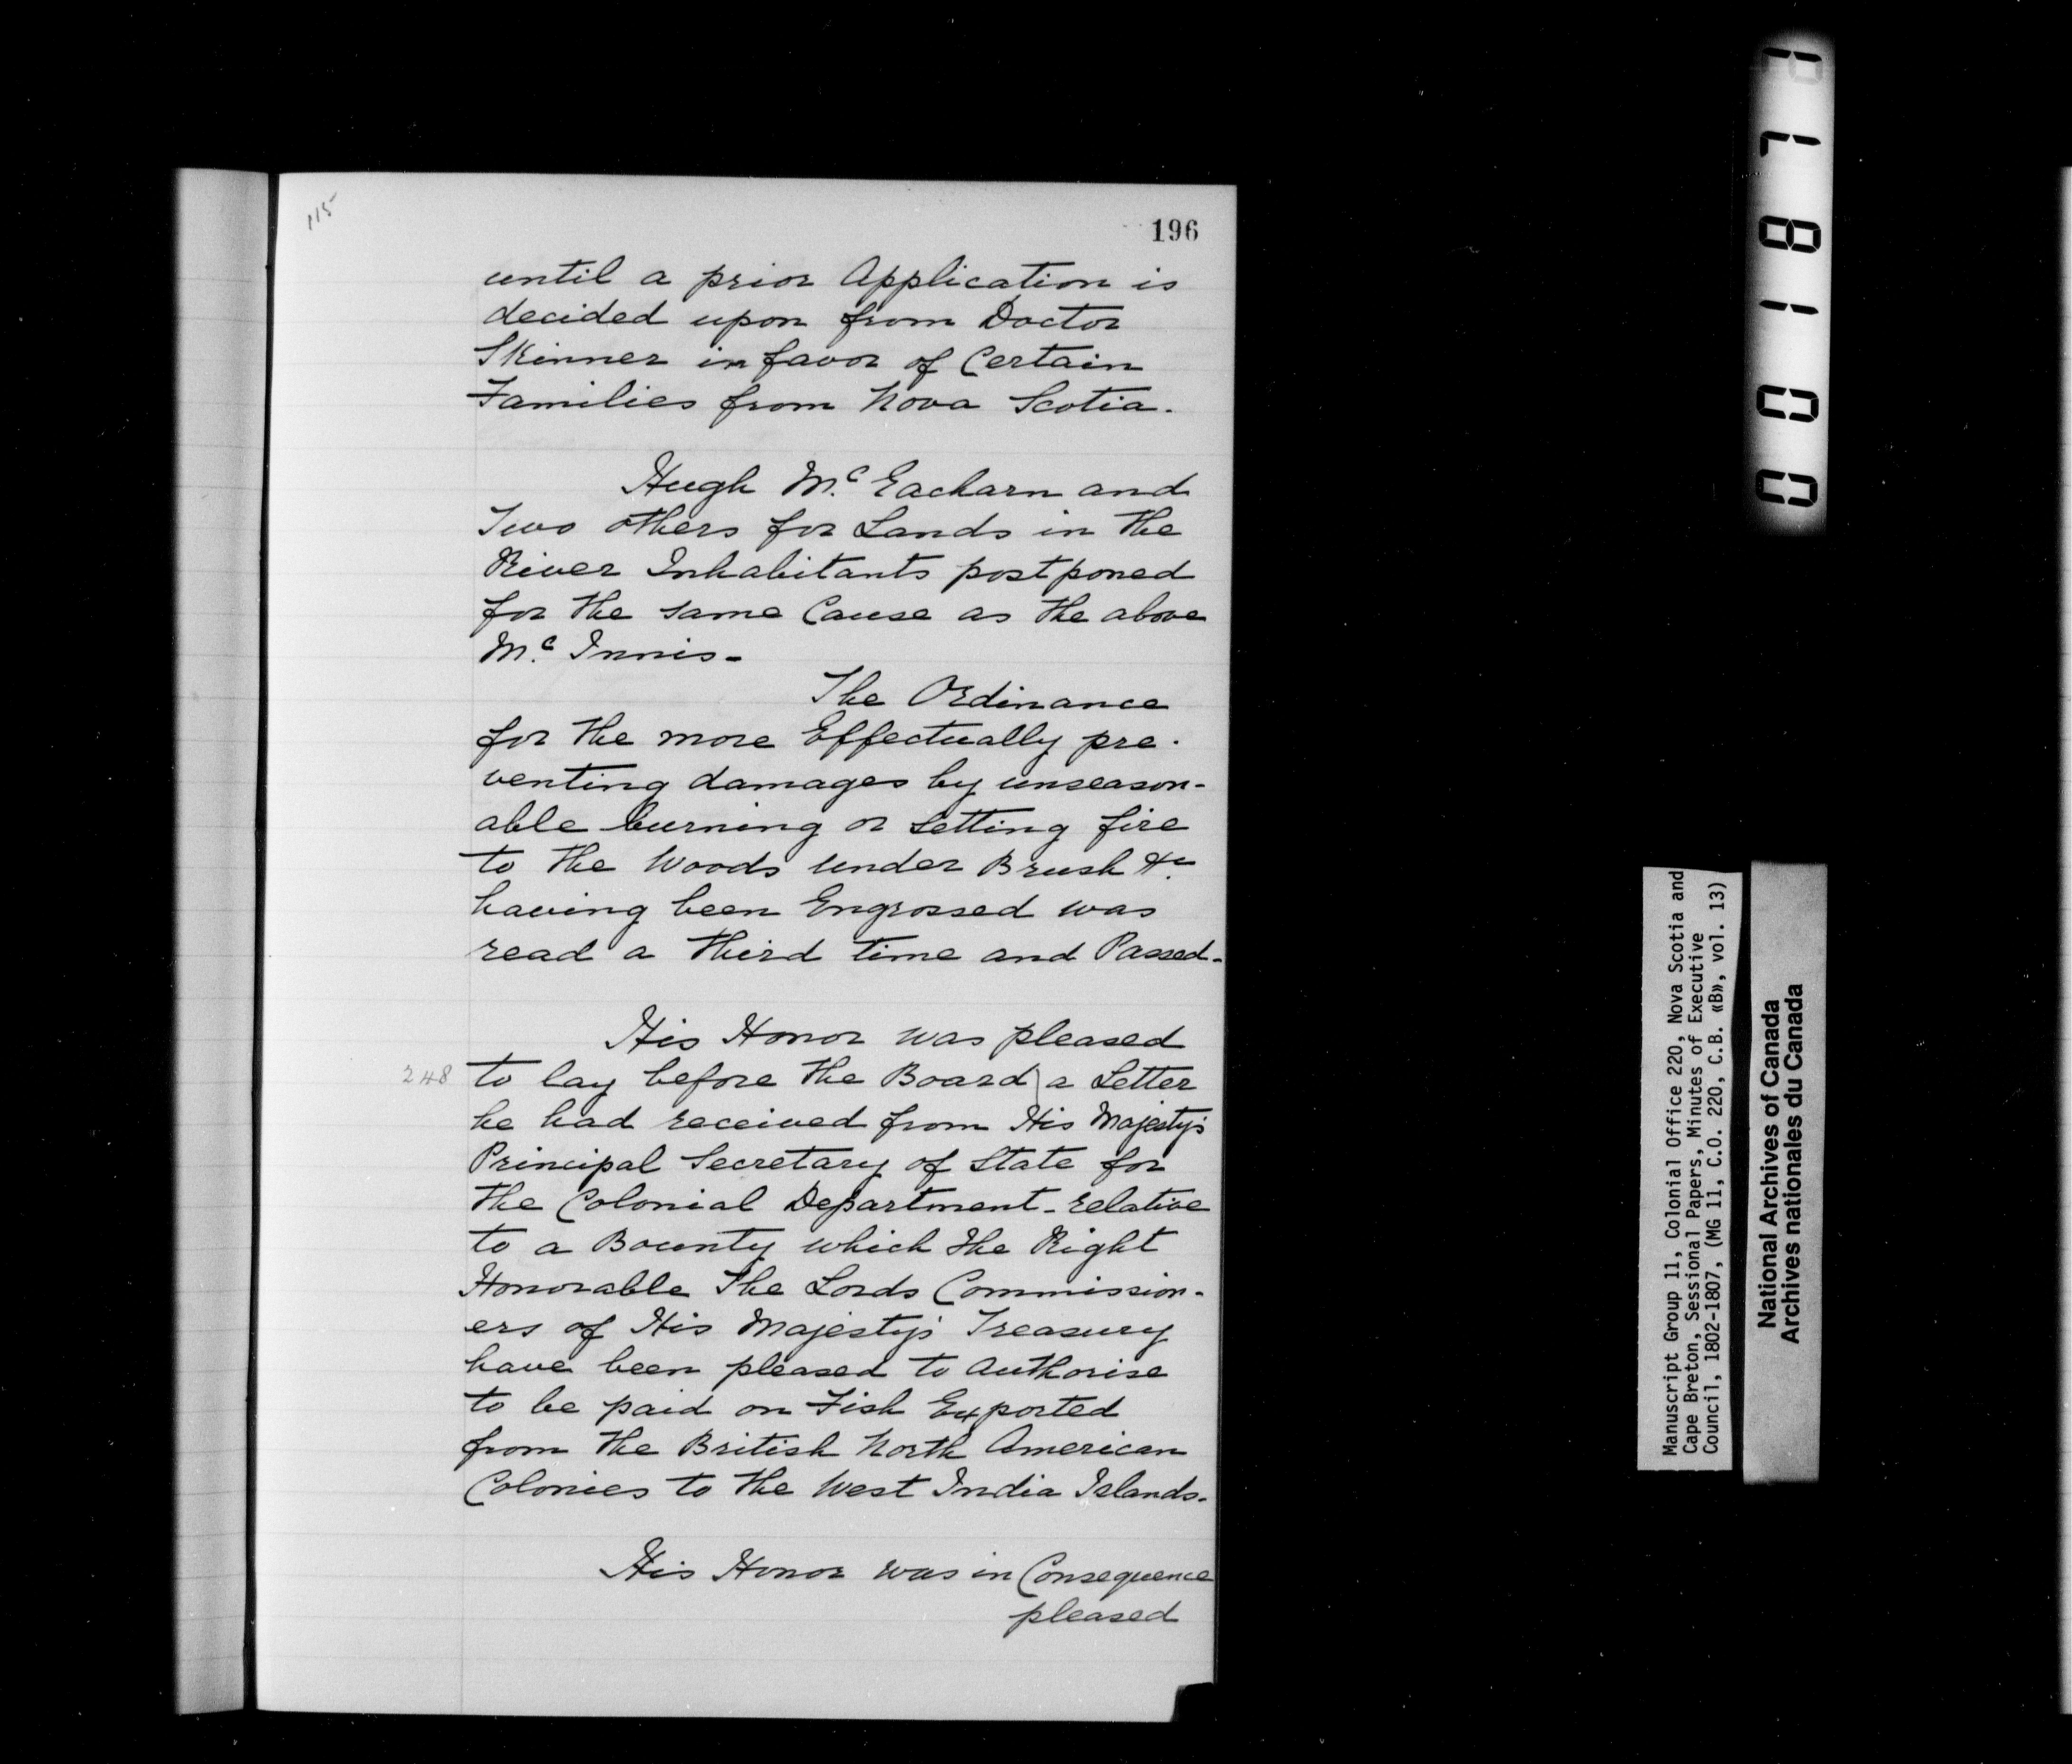 115
196
until a prior Application is
decided upon from Doctor
Skinner in favor of Certain
Families from Nova Scotia.
Hugh Mc. Eacharn and
Two others for Lands in the
River Inhabitants postponed
for the same Cause as the above
Mc. Innis-
The Ordinance
for the more Effectually pre-
venting damages by unseason-
able burning or setting fire
to the Woods under Brush &c.
having been Engrossed was
read a third time and Passed-
His Honor was pleased
248 to lay before the Board | a Letter
he had received from His Majesty's
Principal Secretary of State for
the Colonial Department - relative
to a Bounty which the Right
Honorable The Lords Commission-
ers of His Majesty's Treasury
have been pleased to Authorise
to be paid on Fish Exported
from the British North American
Colonies to the West India Islands.
His Honor was in Consequence
pleased
Manuscript Group 11, Colonial Office 220, Nova Scotia and
Cape Breton, Sessional Papers, Minutes of Executive
Council, 1802-1807, (MG 11, C.O. 220, C.B. «B», vol. 13)
National Archives of Canada
Archives nationales du Canada